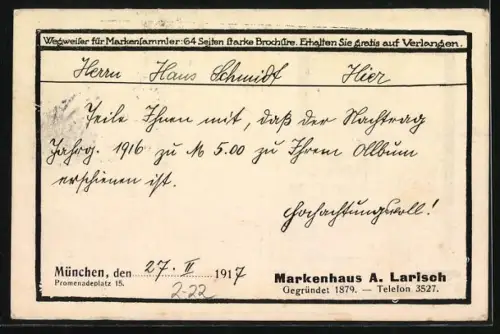 Wegweiser für Markensammler: 64 Seiten starke Brochüre. Erhalten Sie gratis auf Verlangen.
Herrn Hans Schmidt Hier
Teile Ihnen mit, daß der Nachtrag
Jahrg. 1916 zu M 5.00 zu Ihrem Album
erschienen ist.
Hochachtungsvoll!
München, den 27. II 1917
Promenadeplatz 15.
Markenhaus A. Larisch
Gegründet 1879. — Telefon 3527.
2-22